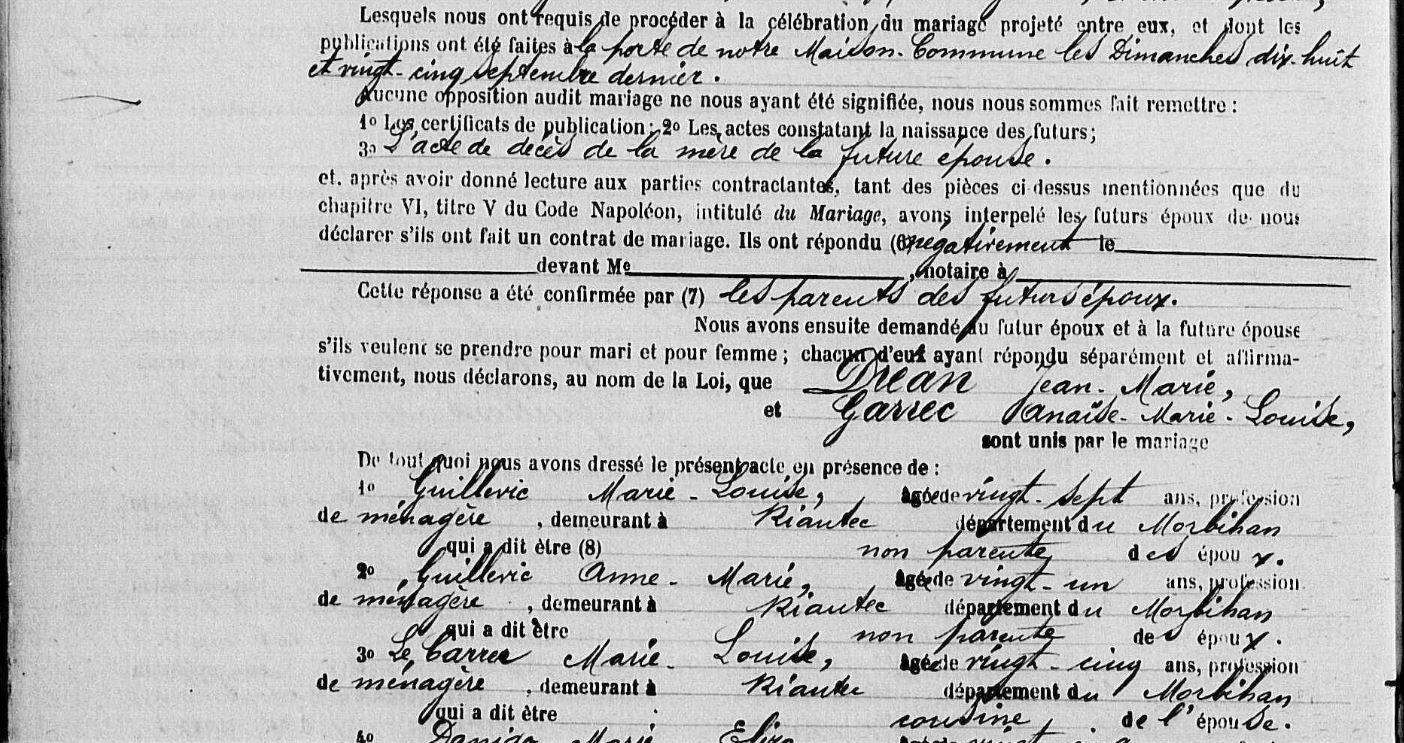 Lesquels nous ont requis de procéder à la célébration du mariage projeté entre eux, et dont les
publications ont été faites à la porte de notre Maison-Commune les Dimanches dix-huit
et vingt-cinq septembre dernier.
Aucune opposition audit mariage ne nous ayant été signifiée, nous nous sommes fait remettre :
1o Les certificats de publication ; 2o Les actes constatant la naissance des futurs ;
3o L'acte de décès de la mère de la future épouse.
et. après avoir donné lecture aux parties contractantes, tant des pièces ci-dessus mentionnées que du
chapitre VI, titre V du Code Napoléon, intitulé du Mariage, avons interpelé les futurs époux de nous
déclarer s'ils ont fait un contrat de mariage. Ils ont répondu (6) négativement le
devant Me , notaire à
Cette réponse a été confirmée par (7) les parents des futurs époux.
Nous avons ensuite demandé au futur époux et à la future épouse
s'ils veulent se prendre pour mari et pour femme ; chacun d'eux ayant répondu séparément et affirma-
tivement, nous déclarons, au nom de la Loi, que Dréan Jean-Marie,
et Garrec Anaïse-Marie-Louise,
sont unis par le mariage
De tout quoi nous avons dressé le présent acte en présence de :
1o Guillevic Marie-Louise, âgée de vingt-sept ans, profession
de ménagère , demeurant à Riantec département du Morbihan
qui a dit être (8) non parente des époux.
2o Guillevic Anne-Marie, âgée de vingt-un ans, profession
de ménagère , demeurant à Riantec département du Morbihan
qui a dit être non parente des époux.
3o Le Marie-Louise, âgée de vingt-cinq ans, profession
de ménagère , demeurant à Riantec département du Morbihan
qui a dit être cousine de l'épouse.
4o Marie Eliza